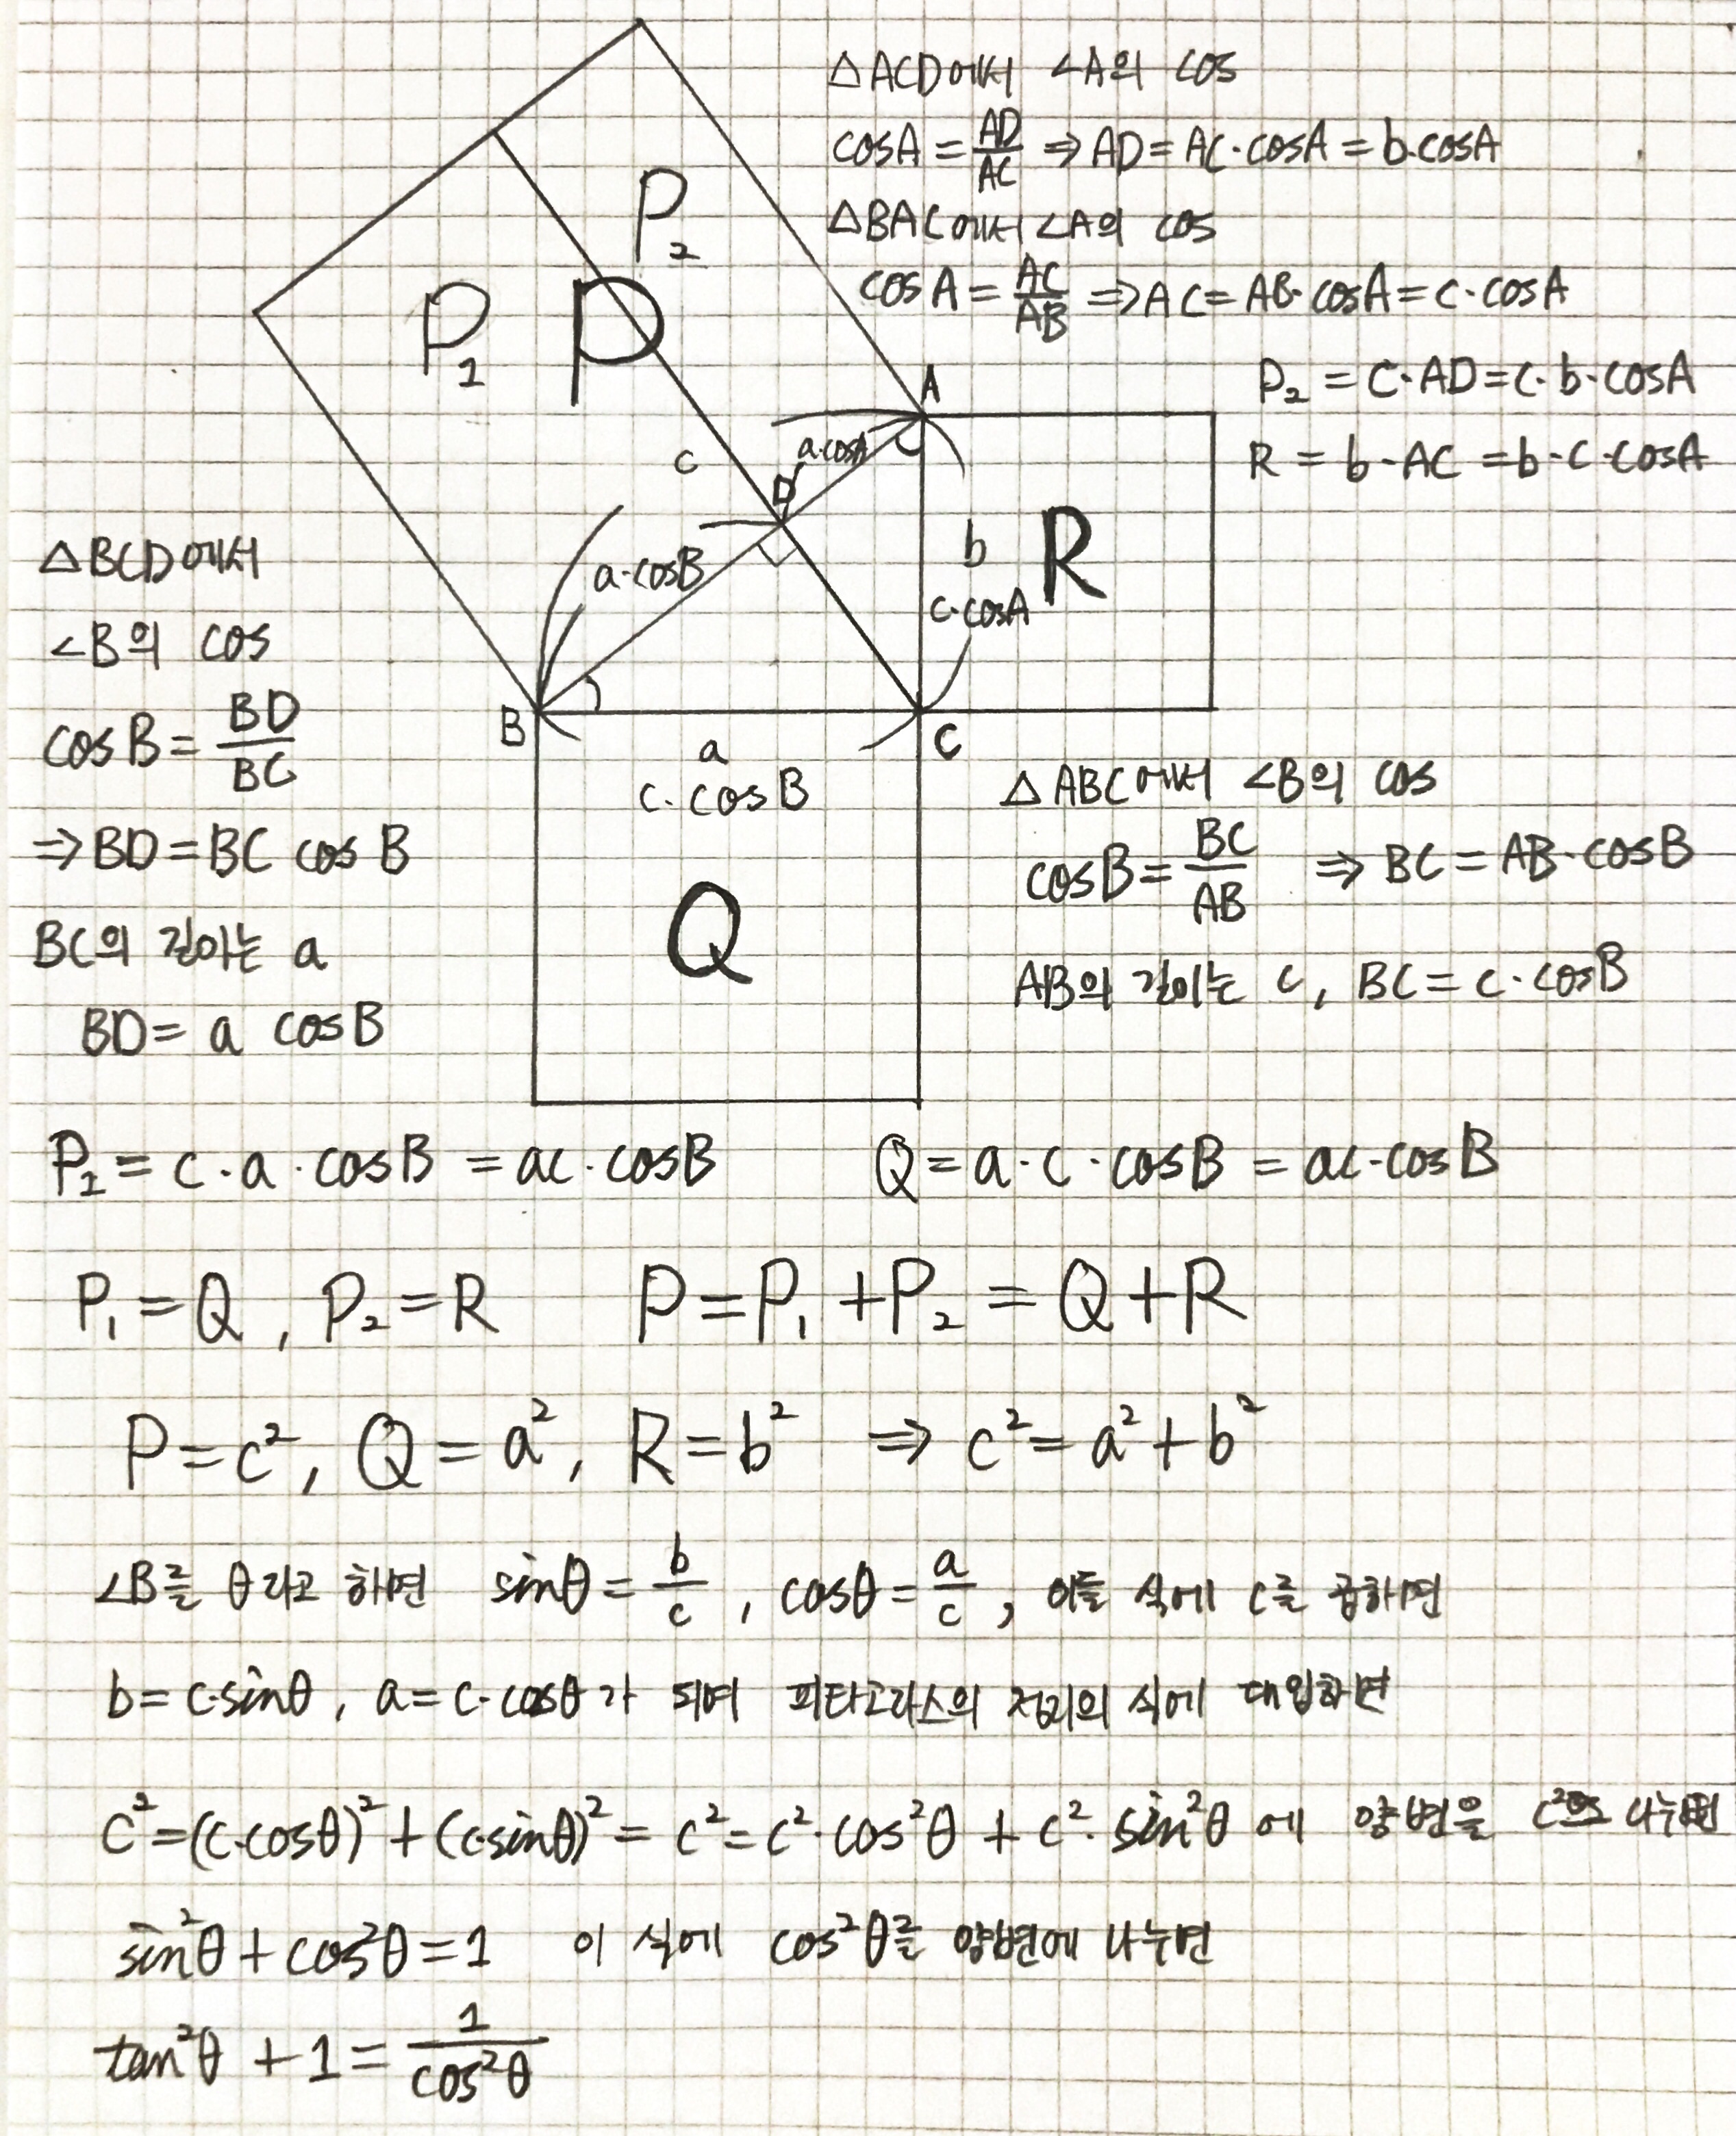 △ACD에서 ∠A의 cos
cosA = AD/AC ⇒ AD = AC·cosA = b·cosA
△BAC에서 ∠A의 cos
cosA = AC/AB ⇒ AC = AB·cosA = c·cosA
P₂ = C·AD = c·b·cosA
R = b·AC = b·c·cosA
P₂
P₁
P
A
c
a·cosA
D
a·cosB
b
R
c·cosA
B
C
a
c·cosB
Q
△BCD에서
∠B의 cos
cosB = BD/BC
⇒ BD = BC cos B
BC의 길이는 a
BD = a cosB
△ABC에서 ∠B의 cos
cosB = BC/AB ⇒ BC = AB·cosB
AB의 길이는 c, BC = c·cosB
P₁ = c·a·cosB = ac·cosB Q = a·c·cosB = ac·cosB
P₁ = Q, P₂ = R P = P₁ + P₂ = Q + R
P = c², Q = a², R = b² ⇒ c² = a² + b²
∠B를 θ라고 하면 sinθ = b/c, cosθ = a/c, 이들 식에 c를 곱하면
b = c·sinθ, a = c·cosθ가 되며 피타고라스의 정리의 식에 대입하면
c² = (c·cosθ)² + (c·sinθ)² = c² = c²·cos²θ + c²·sin²θ 에 양변을 c²으로 나누면
sin²θ + cos²θ = 1 이 식에 cos²θ를 양변에 나누면
tan²θ + 1 = 1/cos²θ